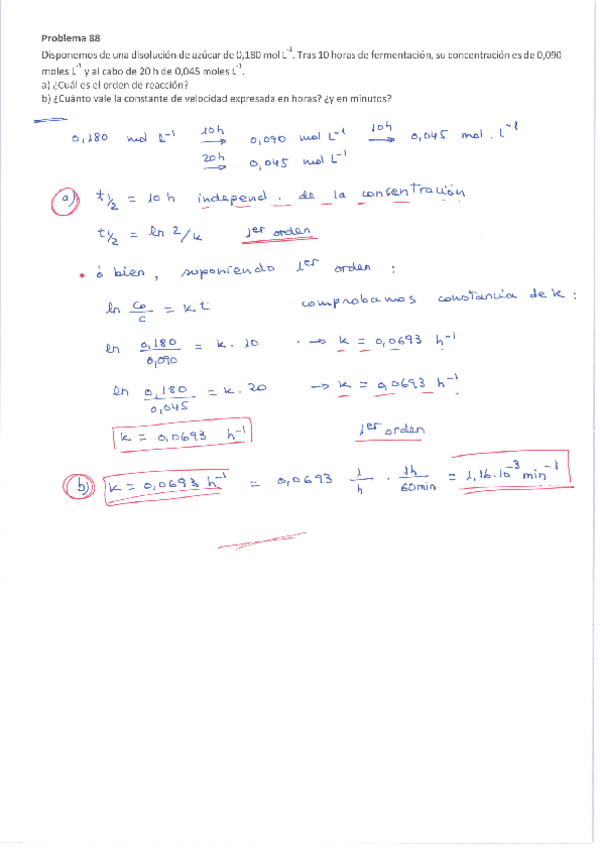 Problema 88
Disponemos de una disolución de azúcar de 0,180 mol L⁻¹. Tras 10 horas de fermentación, su concentración es de 0,090
moles L⁻¹ y al cabo de 20 h de 0,045 moles L⁻¹.
a) ¿Cuál es el orden de reacción?
b) ¿Cuánto vale la constante de velocidad expresada en horas? ¿y en minutos?
0,180 mol L⁻¹ 10h → 0,090 mol L⁻¹ 10h → 0,045 mol . L⁻¹
20h → 0,045 mol L⁻¹
a) t½ = 10 h independ. de la concentración
t½ = ln 2/k 1er orden
• ó bien, suponiendo 1er orden :
ln C₀/C = k t comprobamos constancia de k :
ln 0,180/0,090 = k . 10 → k = 0,0693 h⁻¹
ln 0,180/0,045 = k . 20 → k = 0,0693 h⁻¹
k = 0,0693 h⁻¹ 1er orden
b) k = 0,0693 h⁻¹ = 0,0693 1/h . 1h/60min = 1,16.10⁻³ min⁻¹